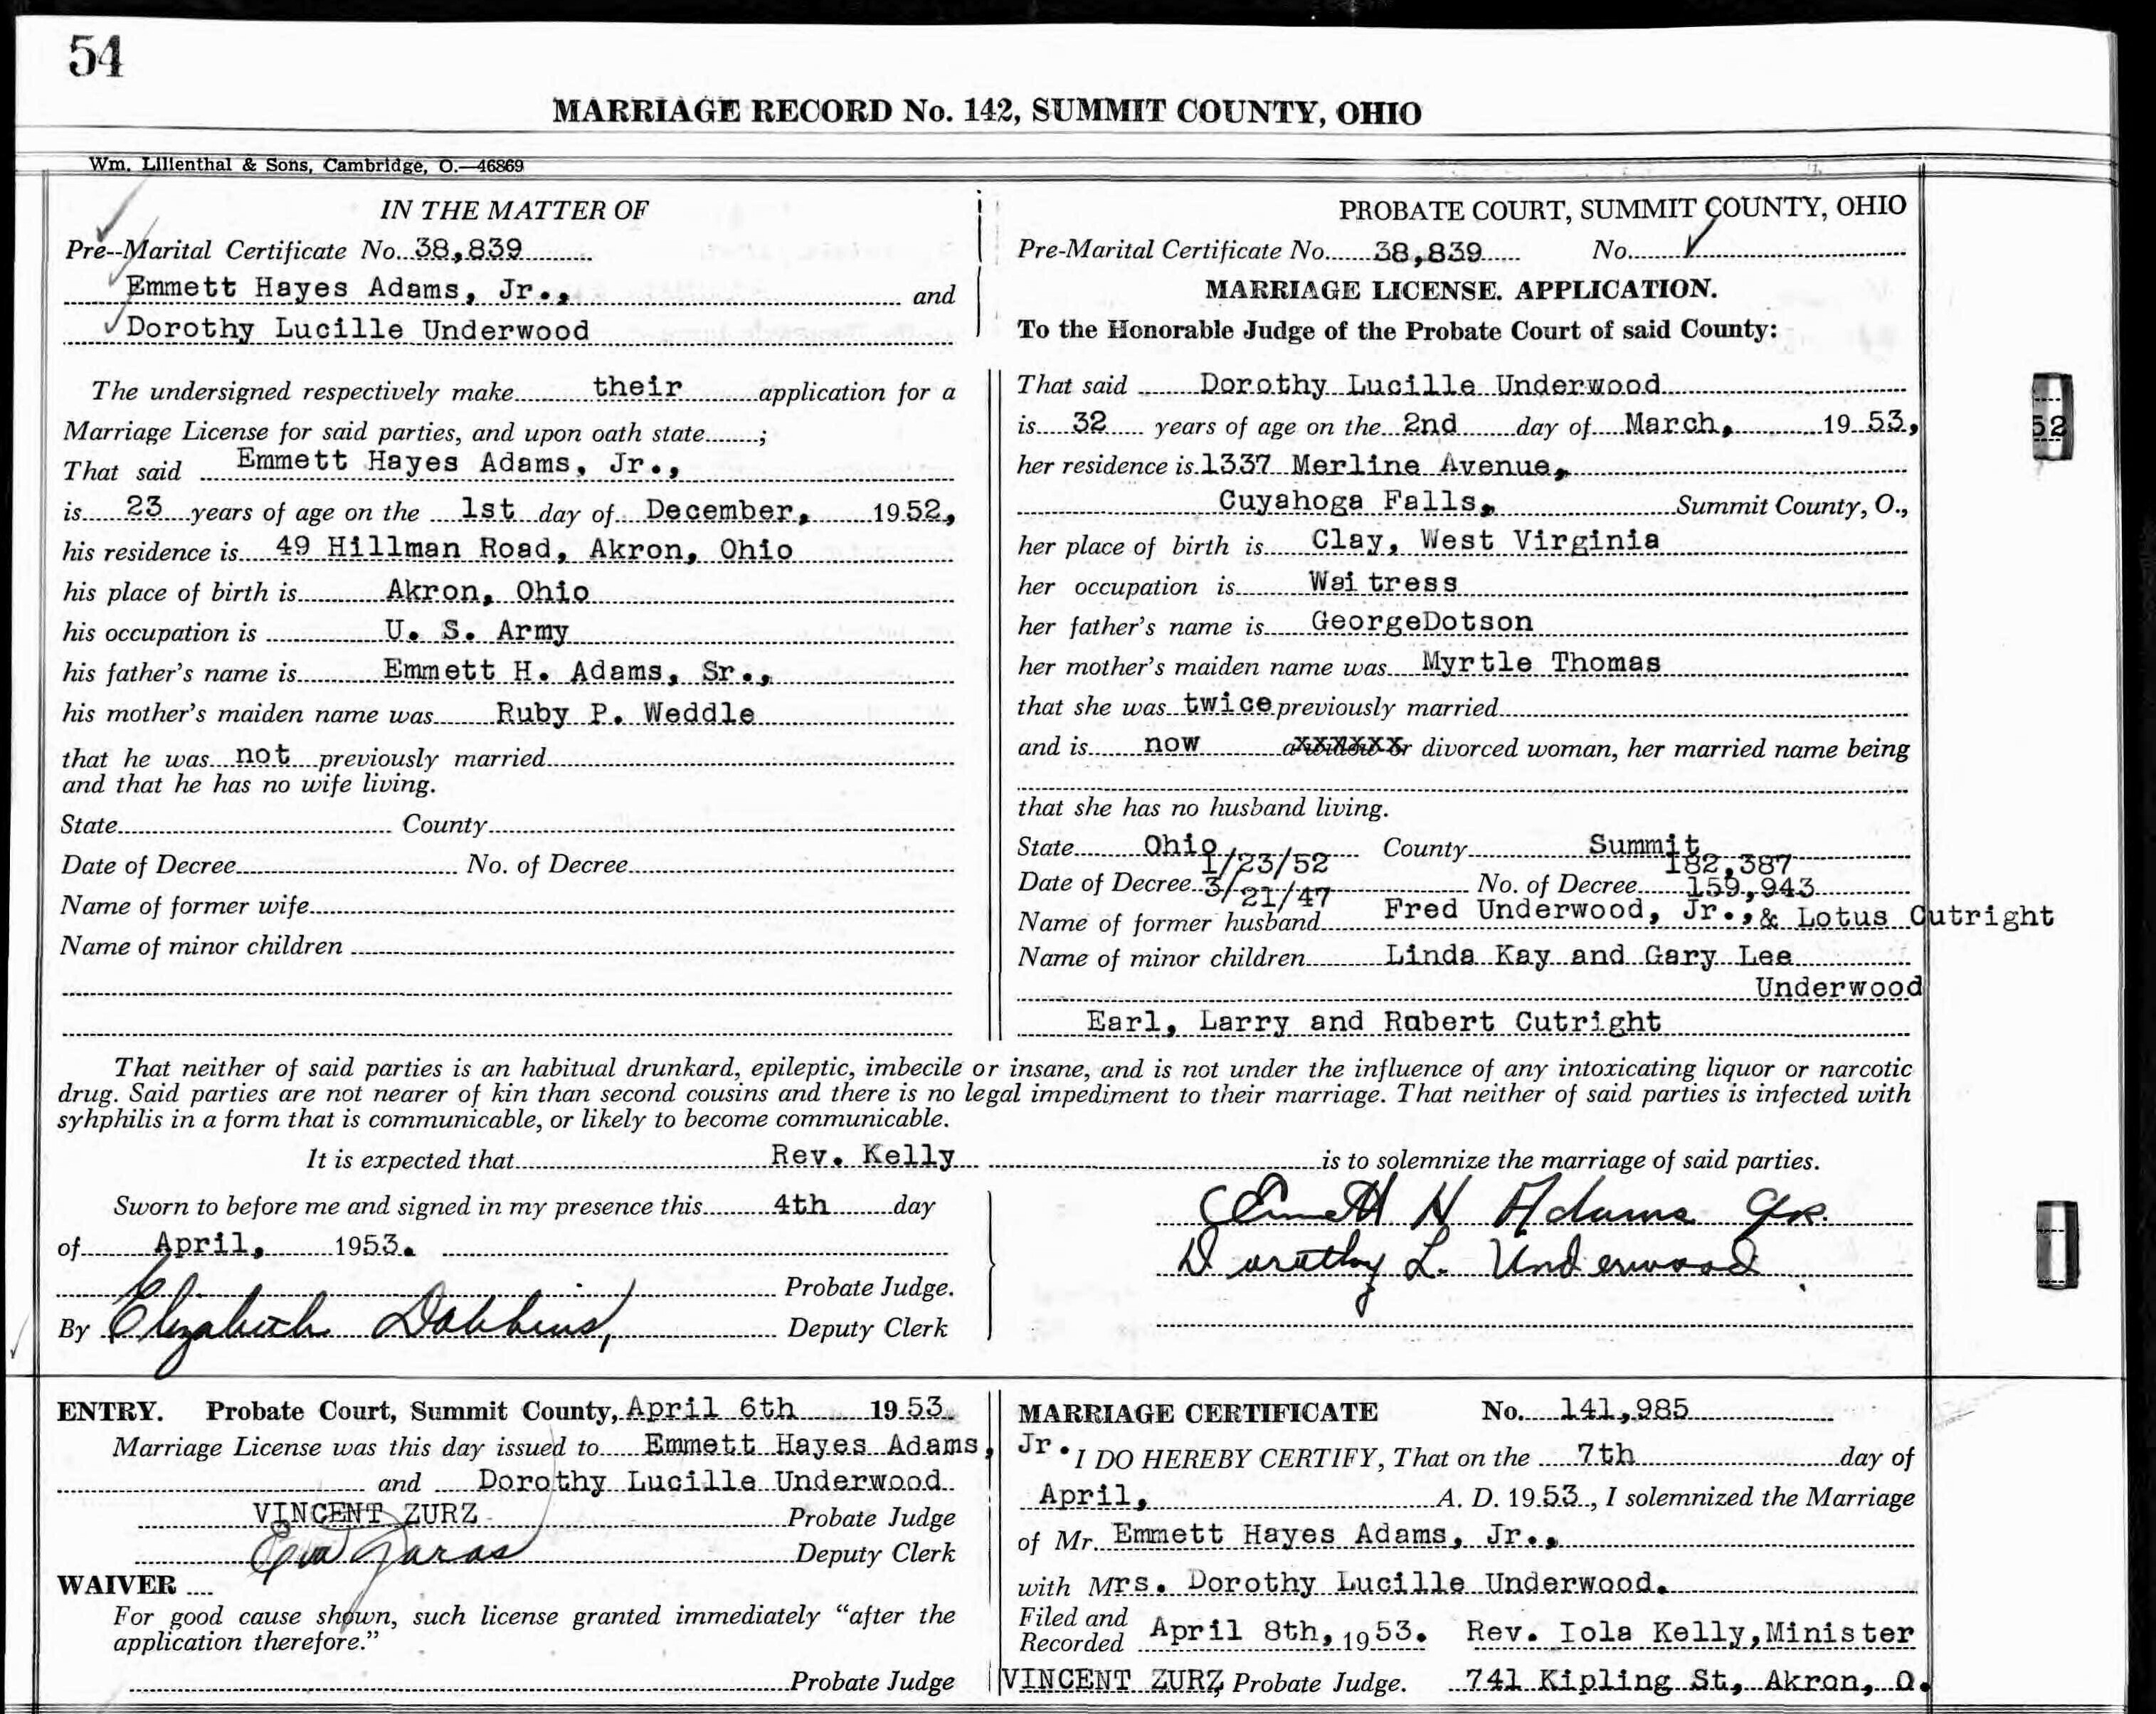 54
MARRIAGE RECORD No. 142, SUMMIT COUNTY, OHIO
Wm. Lilienthal & Sons, Cambridge, O.—46869
IN THE MATTER OF
Pre--Marital Certificate No. 38,839
Emmett Hayes Adams, Jr., and
Dorothy Lucille Underwood
The undersigned respectively make their application for a
Marriage License for said parties, and upon oath state ;
That said Emmett Hayes Adams, Jr.,
is 23 years of age on the 1st day of December, 1952,
his residence is 49 Hillman Road, Akron, Ohio
his place of birth is Akron, Ohio
his occupation is U. S. Army
his father's name is Emmett H. Adams, Sr.,
his mother's maiden name was Ruby P. Weddle
that he was not previously married
and that he has no wife living.
State County
Date of Decree No. of Decree
Name of former wife
Name of minor children
PROBATE COURT, SUMMIT COUNTY, OHIO
Pre-Marital Certificate No. 38,839 No.
MARRIAGE LICENSE. APPLICATION.
To the Honorable Judge of the Probate Court of said County:
That said Dorothy Lucille Underwood
is 32 years of age on the 2nd day of March, 1953,
her residence is 1337 Merline Avenue,
Cuyahoga Falls, Summit County, O.,
her place of birth is Clay, West Virginia
her occupation is Waitress
her father's name is GeorgeDotson
her mother's maiden name was Myrtle Thomas
that she was twice previously married
and is now divorced woman, her married name being
that she has no husband living.
State Ohio County Summit
1/23/52 182,387
Date of Decree 3/21/47 No. of Decree 159,943
Name of former husband Fred Underwood, Jr., & Lotus Cutright
Name of minor children Linda Kay and Gary Lee
Underwood
Earl, Larry and Robert Cutright
52
That neither of said parties is an habitual drunkard, epileptic, imbecile or insane, and is not under the influence of any intoxicating liquor or narcotic
drug. Said parties are not nearer of kin than second cousins and there is no legal impediment to their marriage. That neither of said parties is infected with
syhphilis in a form that is communicable, or likely to become communicable.
It is expected that Rev. Kelly is to solemnize the marriage of said parties.
Sworn to before me and signed in my presence this 4th day
of April, 1953.
Probate Judge.
By Elizabeth Dobbins, Deputy Clerk
Emmett H Adams Jr.
Dorothy L. Underwood
ENTRY. Probate Court, Summit County, April 6th 1953
Marriage License was this day issued to Emmett Hayes Adams, Jr.
and Dorothy Lucille Underwood
VINCENT ZURZ Probate Judge
Deputy Clerk
WAIVER
For good cause shown, such license granted immediately “after the
application therefore.”
Probate Judge
MARRIAGE CERTIFICATE No. 141,985
I DO HEREBY CERTIFY, That on the 7th day of
April, A. D. 1953, I solemnized the Marriage
of Mr. Emmett Hayes Adams, Jr.,
with Mrs. Dorothy Lucille Underwood.
Filed and
Recorded April 8th, 1953. Rev. Iola Kelly, Minister
VINCENT ZURZ Probate Judge. 741 Kipling St, Akron, O.